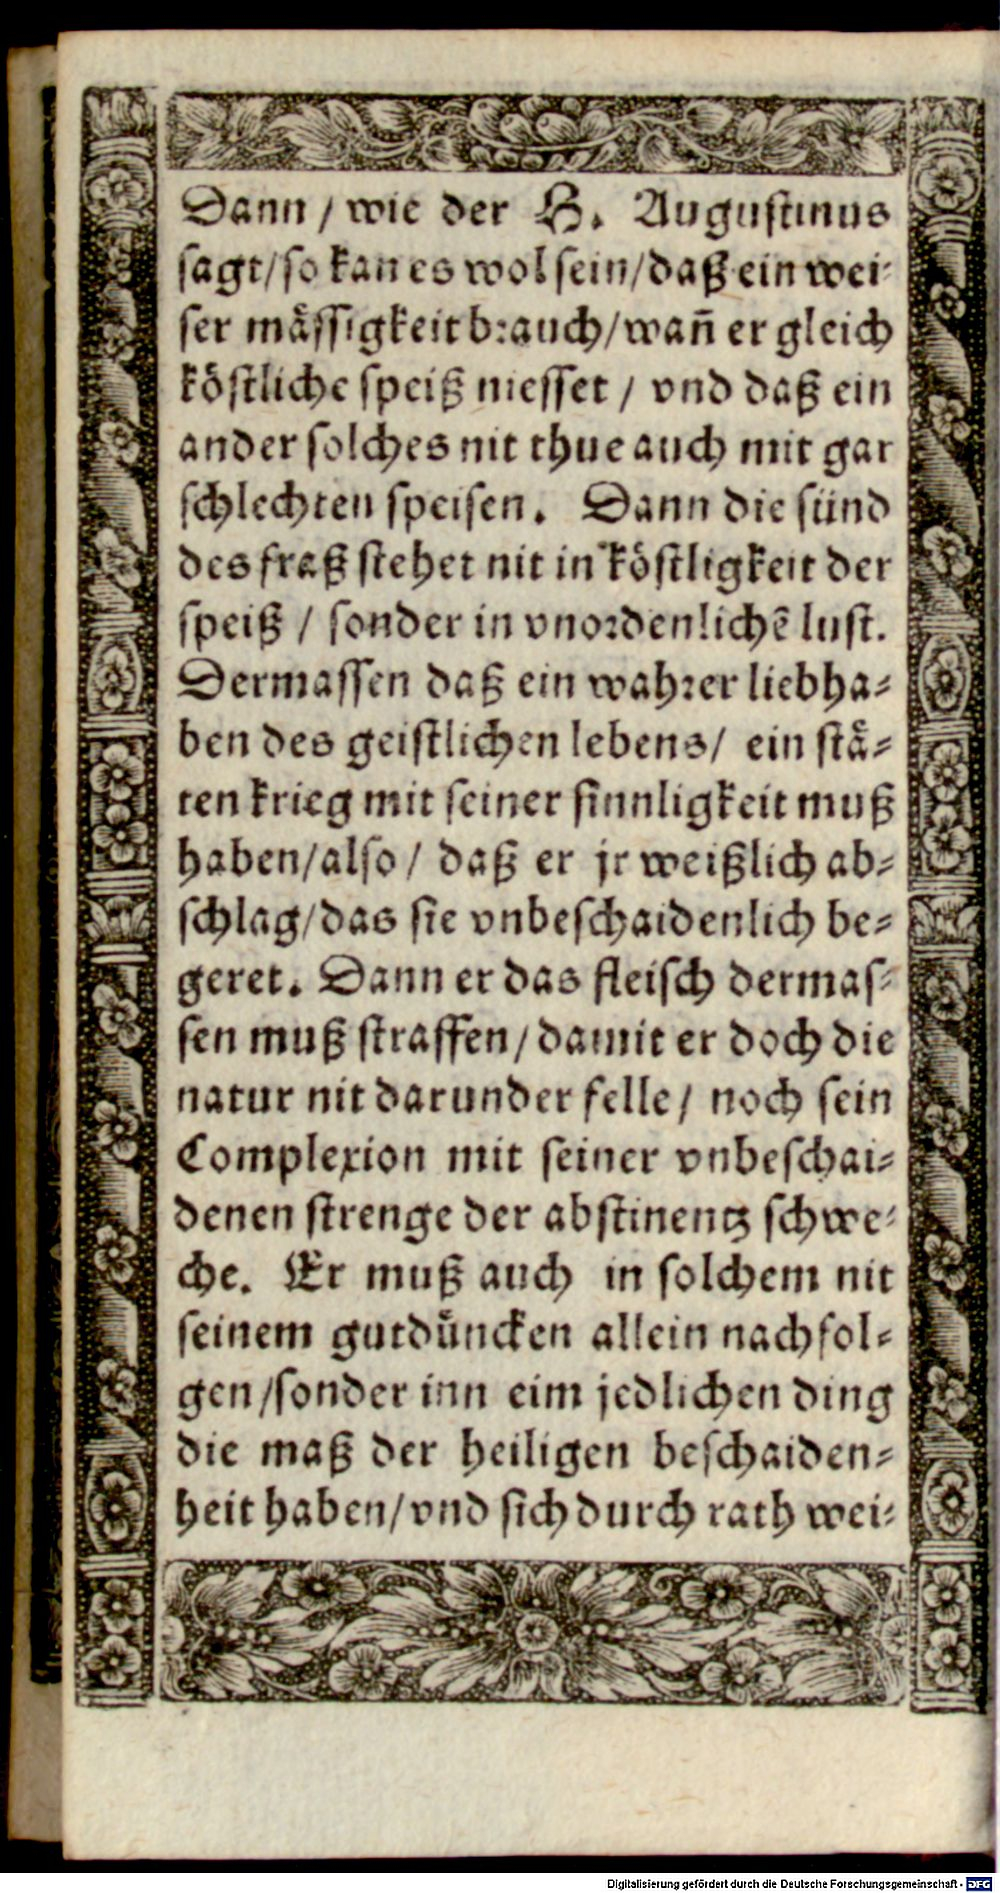 Dann / wie der H. Augustinus
sagt/so kan es wol sein/daß ein wei-
ser mässigkeit brauch/wañ er gleich
köstliche speiß niesset / vnd daß ein
ander solches nit thue auch mit gar
schlechten speisen. Dann die sünd
des fraß stehet nit in köstligkeit der
speiß / sonder in vnordenlichẽ lust.
Dermassen daß ein wahrer liebha-
ben des geistlichen lebens/ ein stä-
ten krieg mit seiner sinnligkeit muß
haben/also/ daß er jr weißlich ab-
schlag/das sie vnbeschaidenlich be-
geret. Dann er das fleisch dermas-
sen muß straffen/damit er doch die
natur nit darunder felle/ noch sein
Complexion mit seiner vnbeschai-
denen strenge der abstinentz schwe-
che. Er muß auch in solchem nit
seinem gutdüncken allein nachfol-
gen/sonder inn eim jedlichen ding
die maß der heiligen beschaiden-
heit haben/vnd sich durch rath wei-
Digitalisierung gefördert durch die Deutsche Forschungsgemeinschaft - DFG